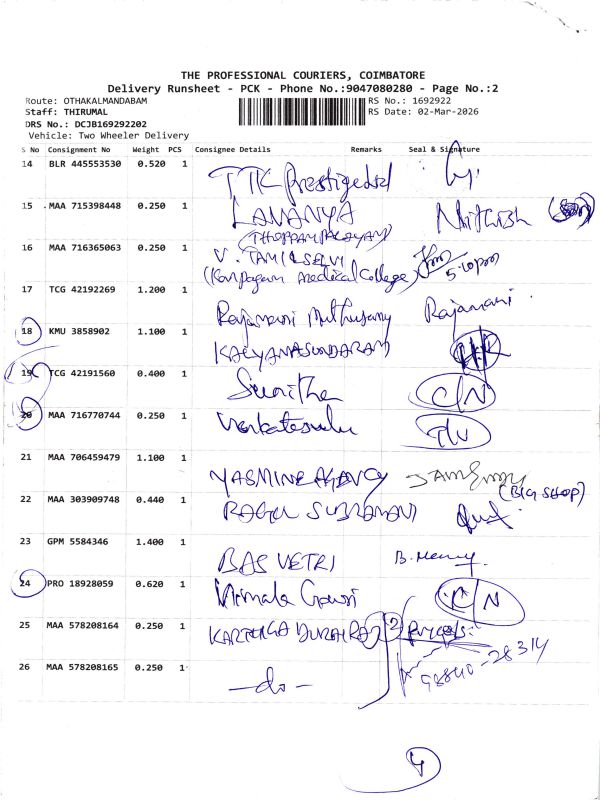 THE PROFESSIONAL COURIERS, COIMBATORE
Delivery Runsheet - PCK - Phone No.:9047080280 - Page No.:2
Route: OTHAKALMANDABAM
RS No.: 1692922
Staff: THIRUMAL
RS Date: 02-Mar-2026
DRS No.: DCJB169292202
Vehicle: Two Wheeler Delivery
S No Consignment No Weight PCS Consignee Details Remarks Seal & Signature
14 BLR 445553530 0.520 1 TTK Prestige Ltd
15 MAA 715398448 0.250 1 LAVANYA Nithish
(THOPPAMPALAYAM)
16 MAA 716365063 0.250 1 V. TAMILSELVI
(Karpagam medical College) 5.10pm
17 TCG 42192269 1.200 1 Rajamani Muthusamy Rajamani
18 KMU 3858902 1.100 1 KALYANASUNDARAM
19 TCG 42191560 0.400 1 Sunitha C/N
20 MAA 716770744 0.250 1 Venkatesulu
21 MAA 706459479 1.100 1 YASMINE AGENCY
(BIG SHOP)
22 MAA 303909748 0.440 1 RAGU SUBRAMANI
23 GPM 5584346 1.400 1 BAS VETRI
24 PRO 18928059 0.620 1 Nirmala Gowri
25 MAA 578208164 0.250 1 KARTHIGA DURAIRAJ 2
26 MAA 578208165 0.250 1 -do- 98840-28314